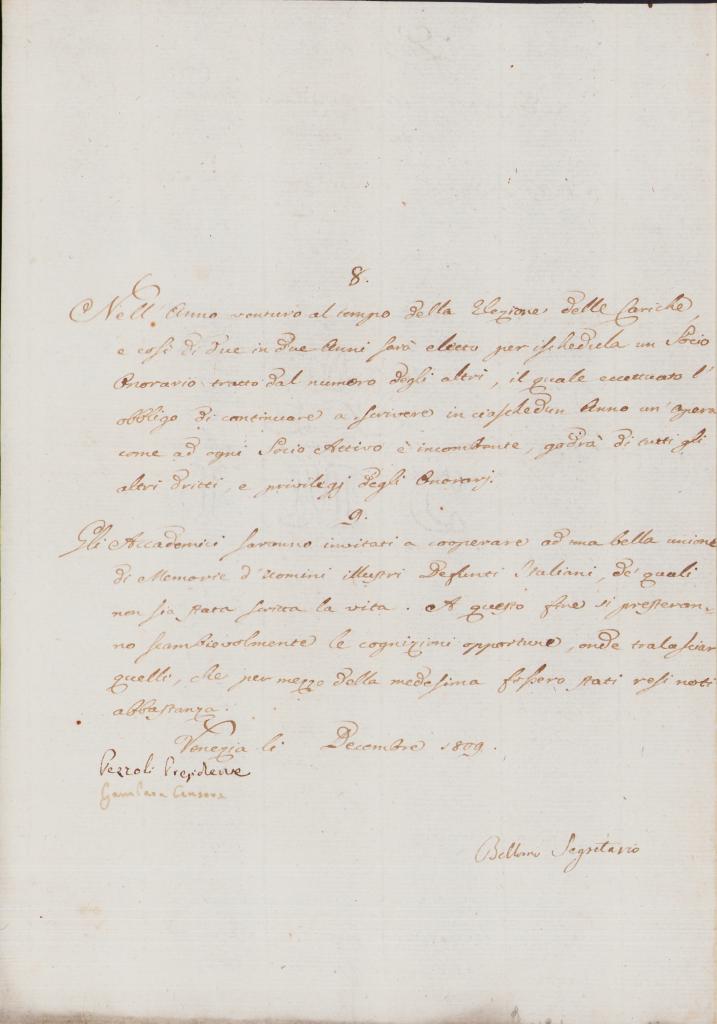 8.
Nell' Anno venturo al tempo della Elezione delle Cariche,
e così di due in due Anni sarà eletto per ischedula un Socio
Onorario tratto dal numero degli altri, il quale eccettuato l'
obbligo di continuare a scrivere in ciaschedun Anno un' opera
come ad ogni Socio Attivo è incombente, godrà di tutti gli
altri dritti, e privilegj degli Onorarj.
9.
Gli Accademici saranno invitati a cooperare ad una bella unione
di Memorie d' Uomini illustri Defunti Italiani, de' quali
non sia stata scritta la vita. A questo fine si presteran-
no scambievolmente le cognizioni opportune, onde tralasciar
quelli, che per mezzo della medesima fossero stati resi noti
abbastanza.
Venezia li Decembre 1809.
Pezzoli Presidente
Gambara Censore
Bellomo Segretario